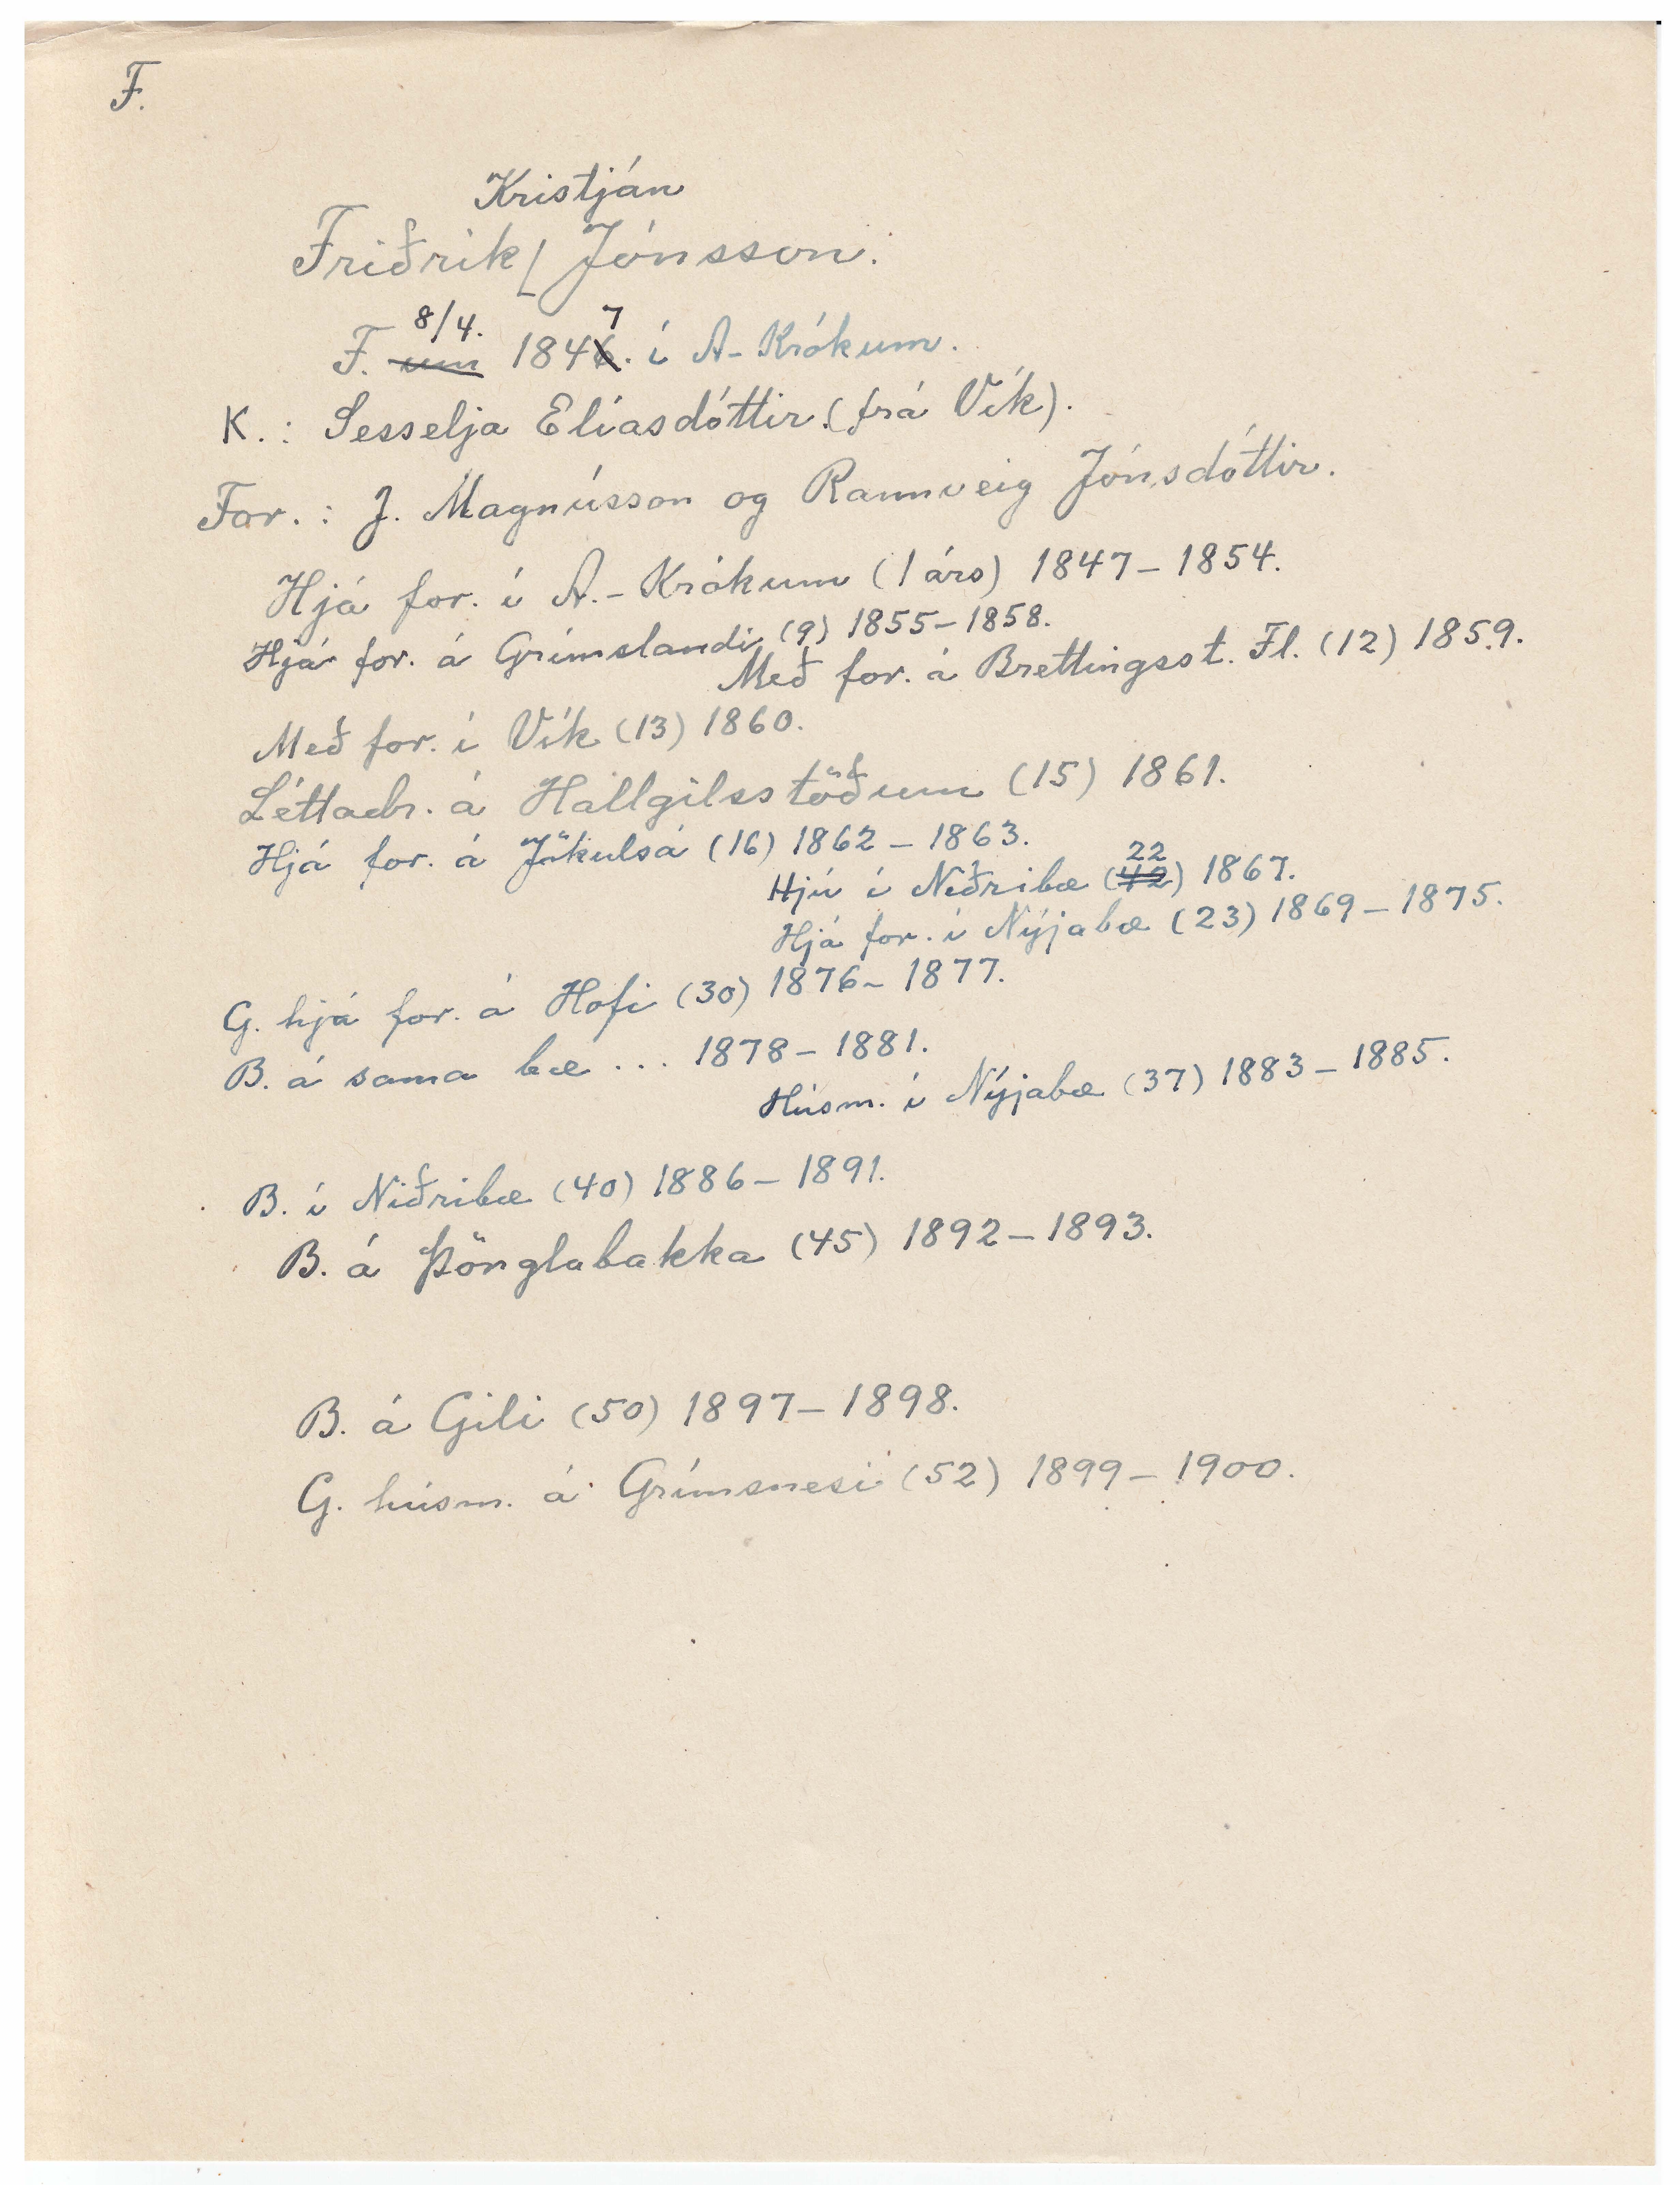 F.
Kristján
Friðrik⌊ Jónsson.
8/4. 7
F. um 1846. í A-Krókum.
K.: Sesselja Elíasdóttir. (frá Vík).
For.: J. Magnússon og Rannveig Jónsdóttir.
Hjá for. í A.-Krókum (1 árs) 1847–1854.
Hjá for. á Grímslandi (9) 1855–1858.
Með for. á Brettingsst. Fl. (12) 1859.
Með for. í Vík (13) 1860.
Léttadr. á Hallgilsstöðum (15) 1861.
Hjá for. á Jökulsá (16) 1862 – 1863.
22
Hjú í Niðribæ (42) 1867.
Hjá for. í Nýjabæ (23) 1869 – 1875.
G. hjá for. á Hofi (30) 1876– 1877.
B. á sama bæ ... 1878 – 1881.
Húsm. í Nýjabæ (37) 1883 – 1885.
B. í Niðribæ (40) 1886 – 1891.
B. á Þönglabakka (45) 1892 – 1893.
B. á Gili (50) 1897 – 1898.
G. húsm. á Grímsnesi (52) 1899 – 1900.